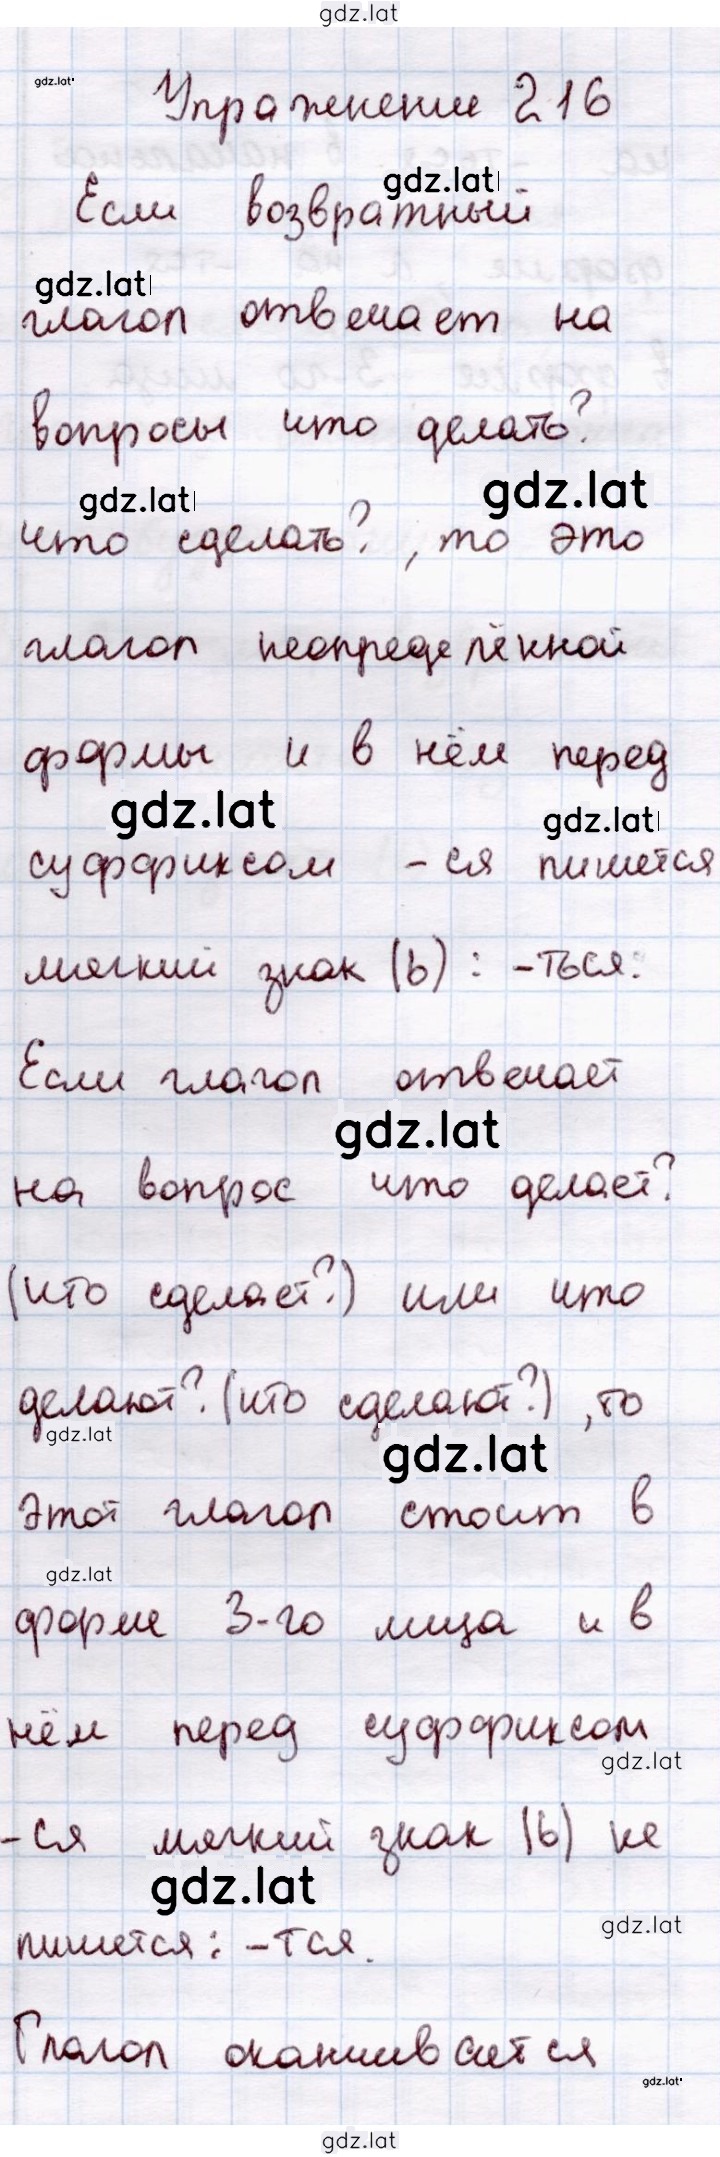 gdz.lat
gdz.lat
Упражнение 216
gdz.lat
Если возвратный
gdz.lat
глагол отвечает на
вопросы что делать?
gdz.lat
gdz.lat
что сделать?, то это
глагол неопределённой
формы и в нём перед
gdz.lat
gdz.lat
суффиксом -ся пишется
мягкий знак (ь): -ться.
Если глагол отвечает
gdz.lat
на вопрос что делает?
(что сделает?) или что
делают? (что сделают?), то
gdz.lat
gdz.lat
этот глагол стоит в
gdz.lat
форме 3-го лица и в
нём перед суффиксом
gdz.lat
-ся мягкий знак (ь) не
gdz.lat
gdz.lat
пишется: -тся.
Глагол оканчивается
gdz.lat
gdz.lat